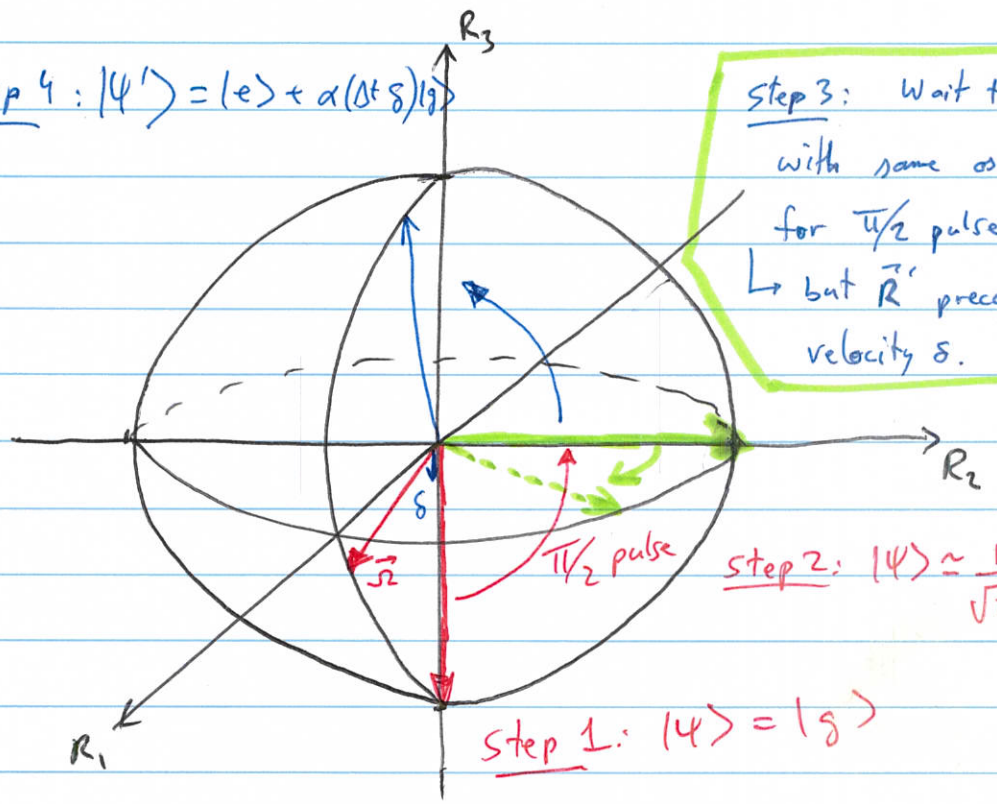 R₃
p 4 : |ψ'⟩ = |e⟩ + α(Δt δ)|g⟩
step 3: Wait
with same os
for π/2 pulse
↳ but R⃗' prec
velocity δ.
R₂
δ
Ω⃗
π/2 pulse
step 2: |ψ⟩ ≃ 1/√
R₁
step 1: |ψ⟩ = |g⟩